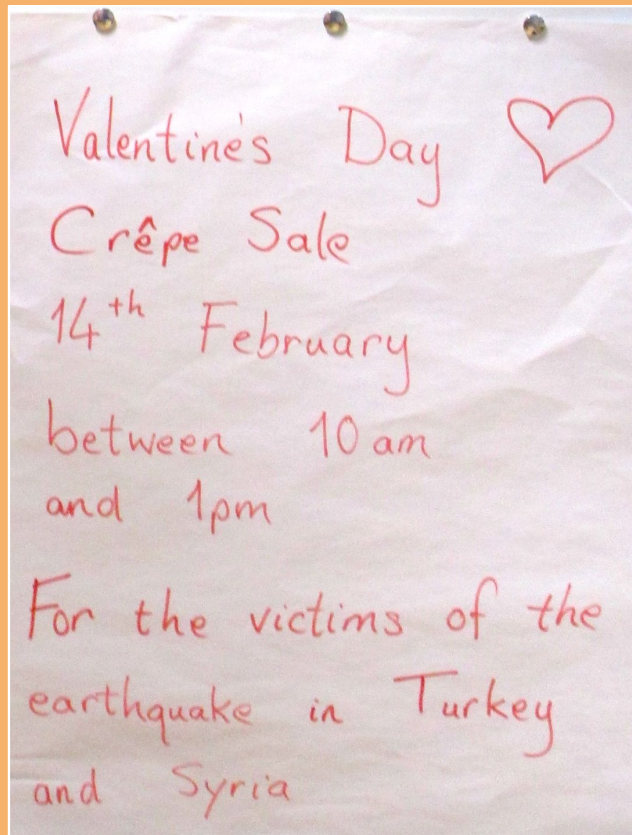 Valentine's Day
Crêpe Sale
14th February
between 10 am
and 1pm
For the victims of the
earthquake in Turkey
and Syria